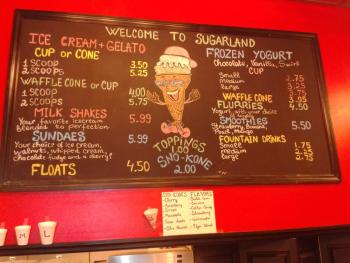 WELCOME TO SUGARLAND
ICE CREAM & GELATO
CUP OR CONE
1 SCOOP 3.50
2 SCOOPS 5.25
WAFFLE CONE OR CUP
1 SCOOP 4.00
2 SCOOPS 5.75
MILK SHAKES
Your favorite icecream 5.99
Blended to perfection
SUNDAES
Your choice of ice cream, 5.99
walnuts, whipped cream,
Chocolate fudge and a cherry!
FLOATS 4.50
TOPPINGS
1.00
SNO-KONE
2.00
FROZEN YOGURT
Chocolate, Vanilla, Swirl
CUP
Small 2.75
medium
large 3.75
WAFFLE CONE
FLURRIES 4.50
Yogurt with your choice
SMOOTHIES 5.50
Strawberry, Banana,
Peach, Mango
FOUNTAIN DRINKS
Small 1.75
medium 2.25
large 2.75
SNO-KONES FLAVORS
Cherry
Grape
Tiger Blood
M L